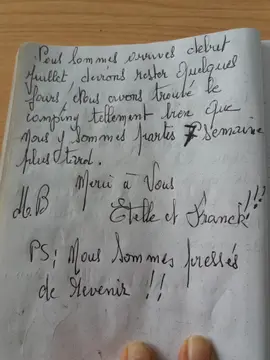 Nous sommes arrivés début
Juillet, devions rester quelques
jours, Nous avons trouvé le
camping tellement bien que
nous y sommes partis 7 semaine
plus tard.
Merci à Vous
MB Etelle et Franck !!!
PS: Nous sommes pressés
de revenir !!